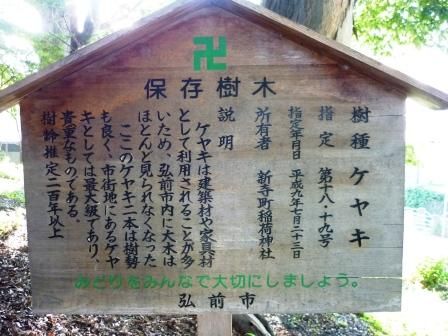 卍
保存樹木
樹種 ケヤキ
指定 第十八・十九号
指定年月日 平成九年七月二十三日
所有者 新寺町稲荷神社
説明
ケヤキは建築材や家具材
として利用されることが多
いため、弘前市内に大木は
ほとんど見られなくなった
ここのケヤキ二本は樹勢
も良く、市街地にあるケヤ
キとしては最大級であり、
貴重なものである。
樹齢推定二百年以上
みどりをみんなで大切にしましょう。
弘前市